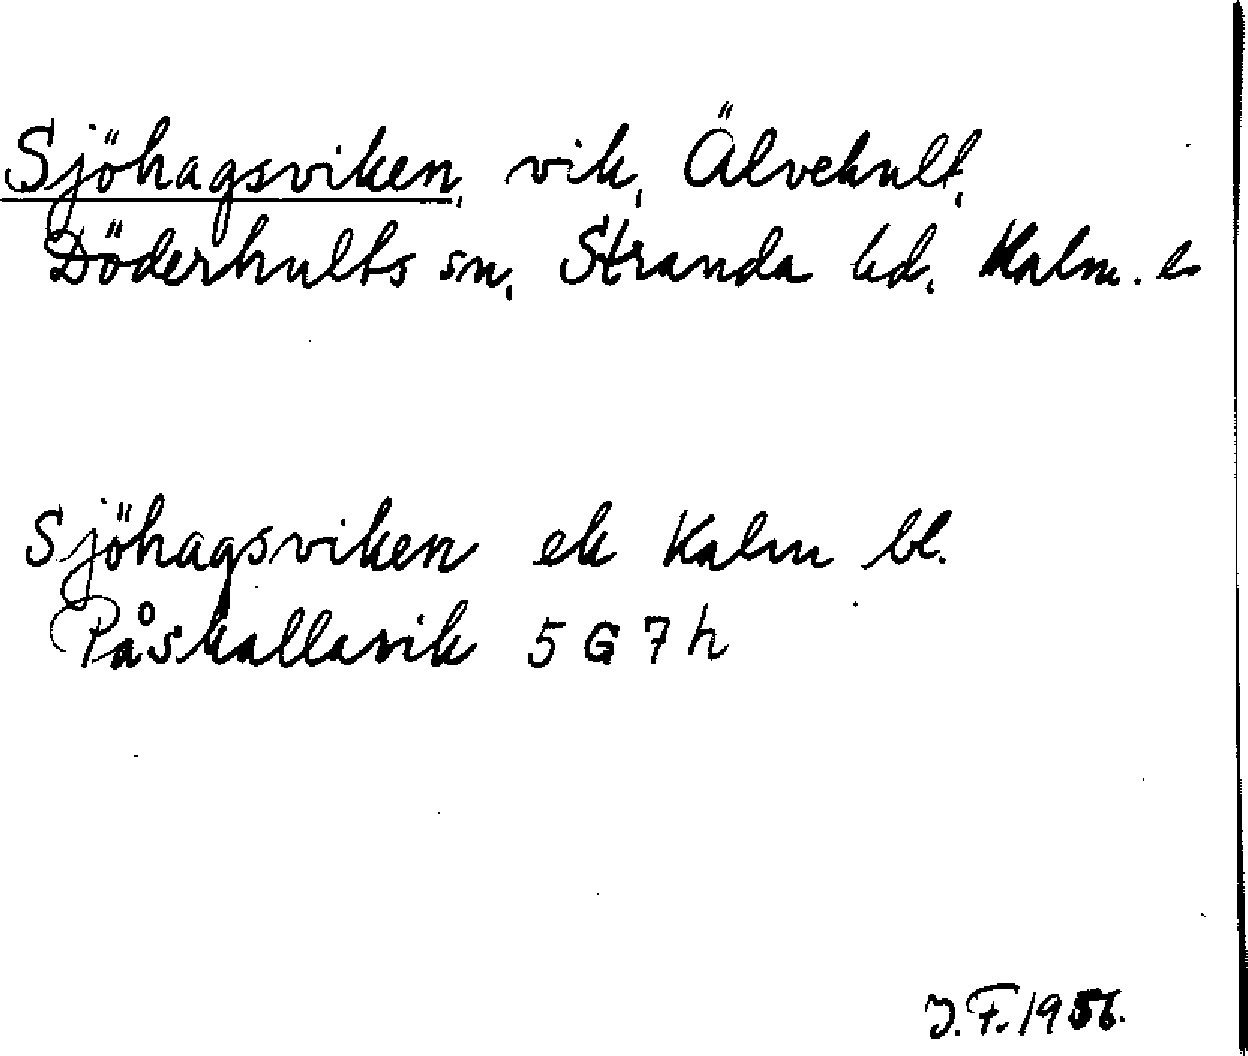 Sjöhagsviken, vik, Älvehult,
Döderhults sn, Stranda hd, Kalm. l
Sjöhagsviken ek Kalm bl.
Påskallavik 5 G 7 h
J. F. 1956.